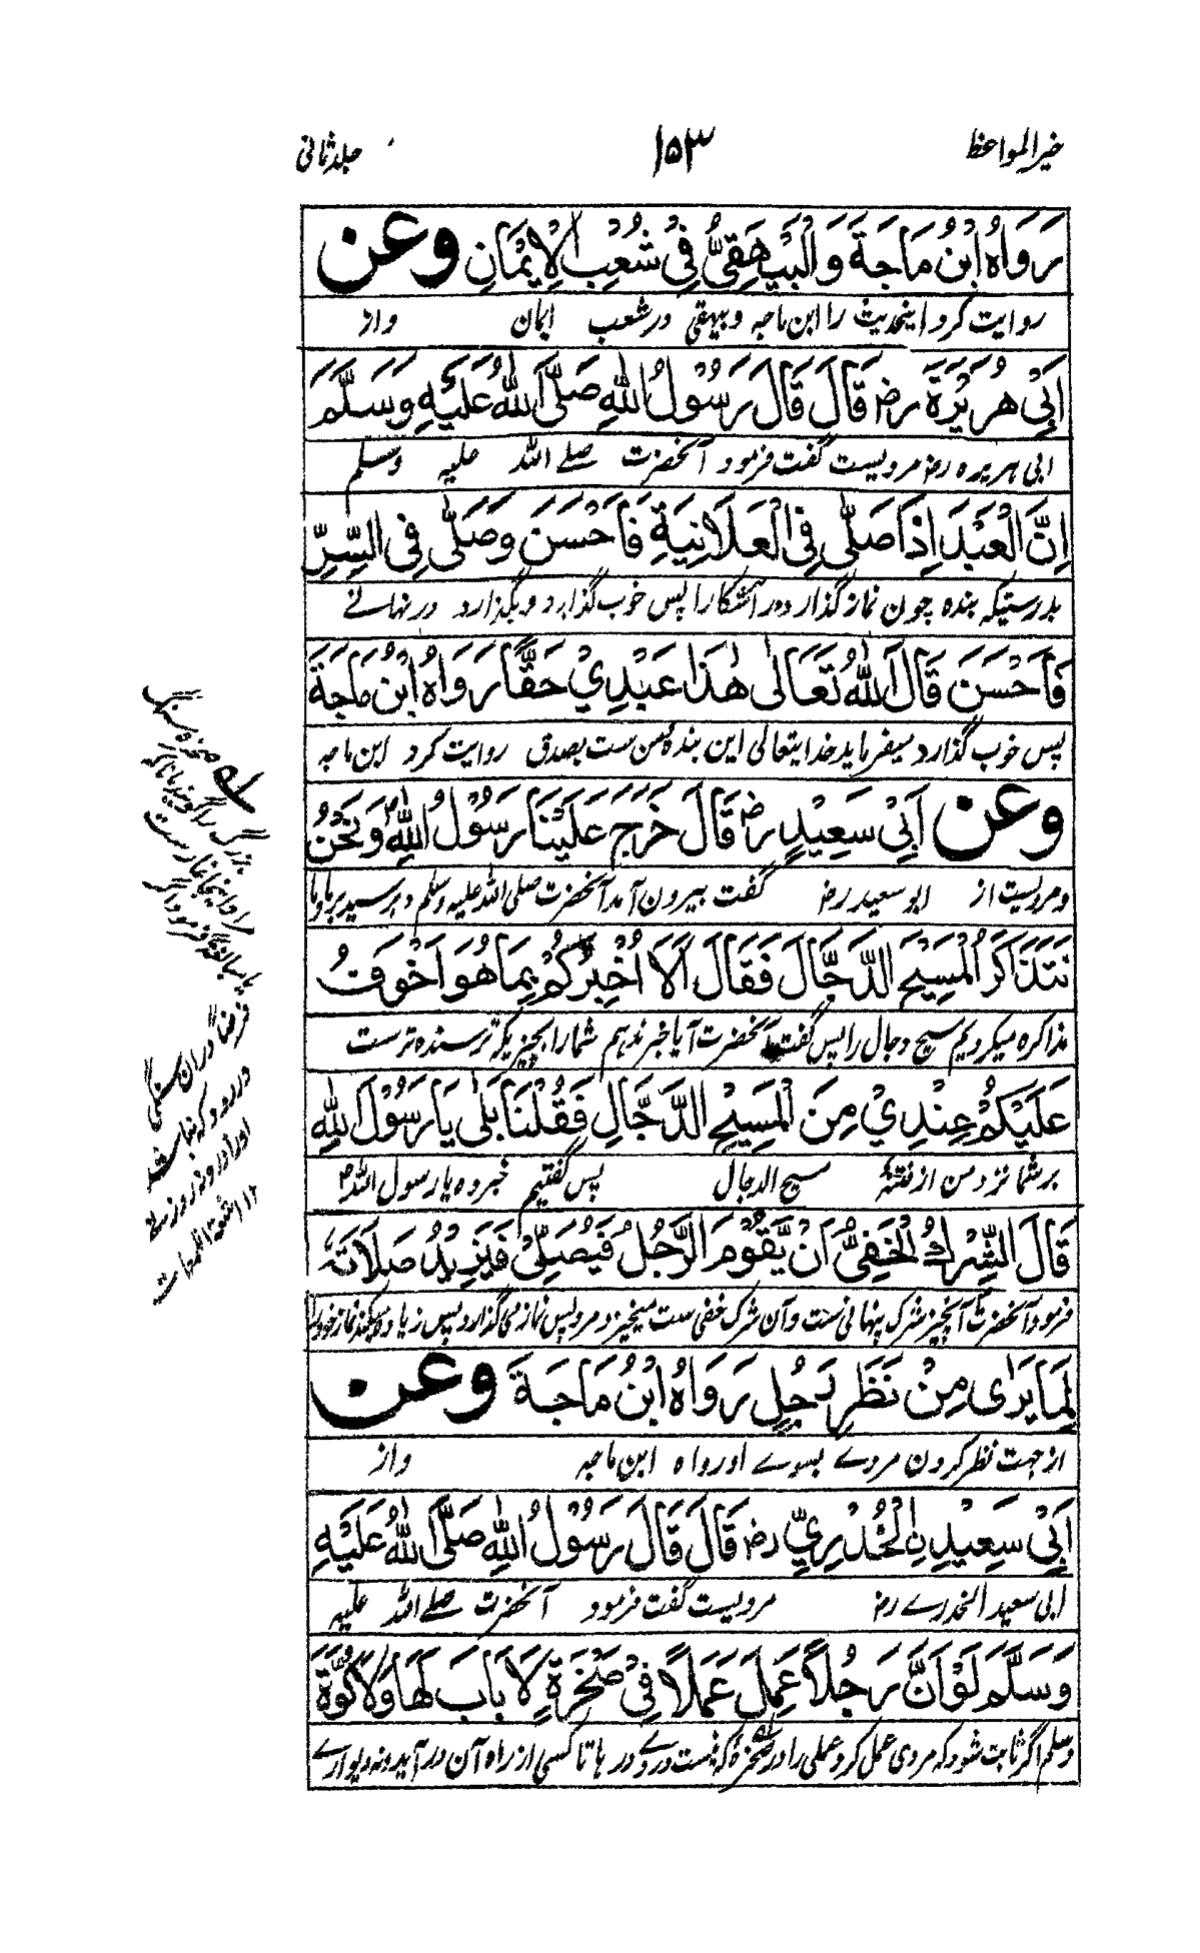 خیرالمواعظ ۱۵۳ جلد ثانی
رَوَاهُ ابْنُ مَاجَةَ وَالْبَیْهَقِیُّ فِیْ شُعَبِ الْاِیْمَانِ وعن
روایت کرد اینحدیث را ابن ماجه وبیهقی درشعب ایمان واز
اَبِیْ هُرَیْرَةَ رضـ قَالَ قَالَ رَسُوْلُ اللّٰهِ صَلَّی اللّٰهُ عَلَیْهِ وَسَلَّمَ
ابی هریره رضـ مرویست گفت فرمود آنحضرت صلے اللّٰه علیه وسلم
اِنَّ الْعَبْدَ اِذَا صَلّٰی فِی الْعَلَانِیَةِ فَاَحْسَنَ وَصَلّٰی فِی السِّرِّ
بدرستیکه بنده چون نماز گذارد در آشکارا پس خوب گذارد وبگذارد در نهانے
فَاَحْسَنَ قَالَ اللّٰهُ تَعَالٰی هٰذَا عَبْدِیْ حَقًّا رَوَاهُ ابْنُ مَاجَةَ
پس خوب گذارد میفرماید خدایتعالی این بندهٔ من ست بصدق روایت کرد ابن ماجه
وعن اَبِیْ سَعِیْدٍ رضـ قَالَ خَرَجَ عَلَیْنَا رَسُوْلُ اللّٰهِ ؐ وَنَحْنُ
ومرویست از ابو سعید رضـ گفت بیرون آمد آنحضرت صلی اللّٰه علیه وسلم ورسید برما وما
نَتَذَاكَرُ الْمَسِیْحَ الدَّجَّالَ فَقَالَ اَلَا اُخْبِرُكُمْ بِمَا هُوَ اَخْوَفُ
مذاکره میکردیم مسیح دجال را پس گفت آنحضرت آیا خبر ندهم شما را بچیزیکه ترسنده ترست
عَلَیْكُمْ عِنْدِیْ مِنَ الْمَسِیْحِ الدَّجَّالِ فَقُلْنَا بَلٰی یَا رَسُوْلَ اللّٰهِ
برشما نزد من از فتنهٔ مسیح الدجال پس گفتیم خبرده یا رسول اللّٰه ؐ
قَالَ الشِّرْكُ الْخَفِیُّ اَنْ یَّقُوْمَ الرَّجُلُ فَیُصَلِّیْ فَیَزِیْدُ صَلَاتَهٗ
فرمود آنحضرت آنچیز شرک پنهانی ست وآن شرک خفی ست میخیزد مرد پس نماز می گذارد پس زیاد میکند نماز خود را
لِمَا یَرٰی مِنْ نَظَرِ رَجُلٍ رَوَاهُ ابْنُ مَاجَةَ وعن
از جهت نظر کردن مردے بسوے او رواه ابن ماجه واز
اَبِیْ سَعِیْدِ ۨالْخُدْرِیِّ رضـ قَالَ قَالَ رَسُوْلُ اللّٰهِ صَلَّی اللّٰهُ عَلَیْهِ
ابی سعید الخدرے رضـ مرویست گفت فرمود آنحضرت صلے اللّٰه علیه
وَسَلَّمَ لَوْ اَنَّ رَجُلًا عَمِلَ عَمَلًا فِیْ صَخْرَةٍ لَا بَابَ لَهَا وَلَا كُوَّةَ
وسلم اگر ثابت شود که مردی عمل کرد عملی را در صخرهٔ که نیست در وے در ها تا کسی از راه آن در آید ونه دیوارے
له صخره سنگ
بزرگ را گویند